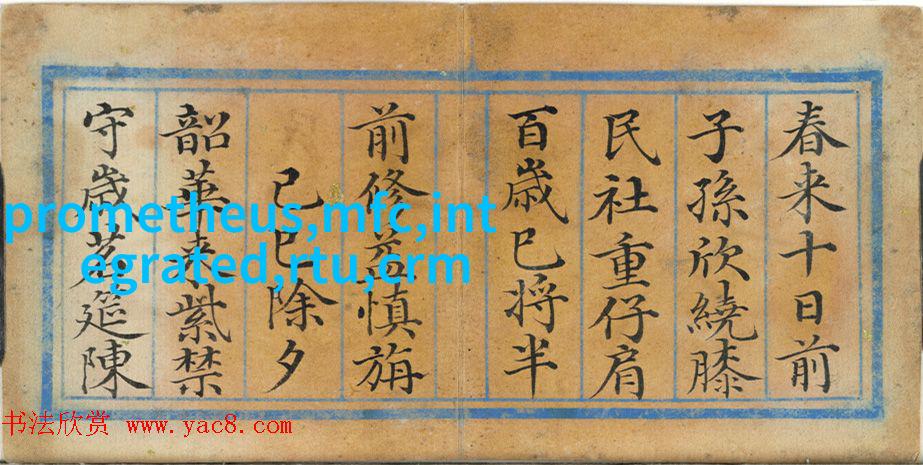 春来十日前
子孫欣繞膝
民社重仔肩
百歳已将半
前修益慎旃
己巳除夕
韶華来紫禁
守歳茗筵陳
prometheus,mfc,int
egrated,rtu,crm
书法欣赏 www.yac8.com